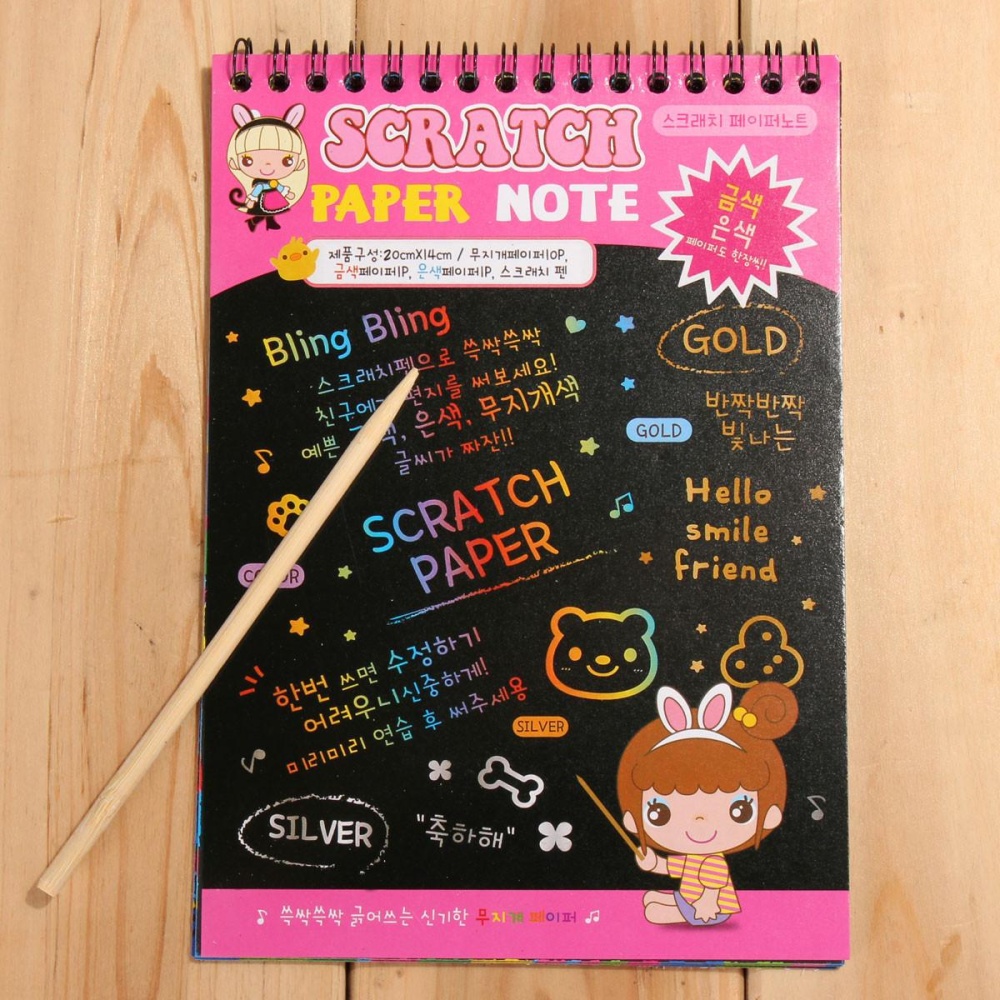 SCRATCH
스크래치 페이퍼노트
PAPER NOTE
금색
은색
페이퍼도 한장씩!
제품구성:20cmX14cm / 무지개페이퍼10P,
금색페이퍼1P, 은색페이퍼1P, 스크래치 펜
Bling Bling
스크래치펜으로 쓱싹쓱싹
친구에게 편지를 써보세요!
예쁜 은색, 무지개색
글씨가 짜잔!!
GOLD
GOLD
반짝반짝
빛나는
SCRATCH
PAPER
Hello
smile
friend
한번 쓰면 수정하기
어려우니신중하게!
미리미리 연습 후 써주세용
SILVER
SILVER
"축하해"
쓱싹쓱싹 긁어쓰는 신기한 무지개 페이퍼